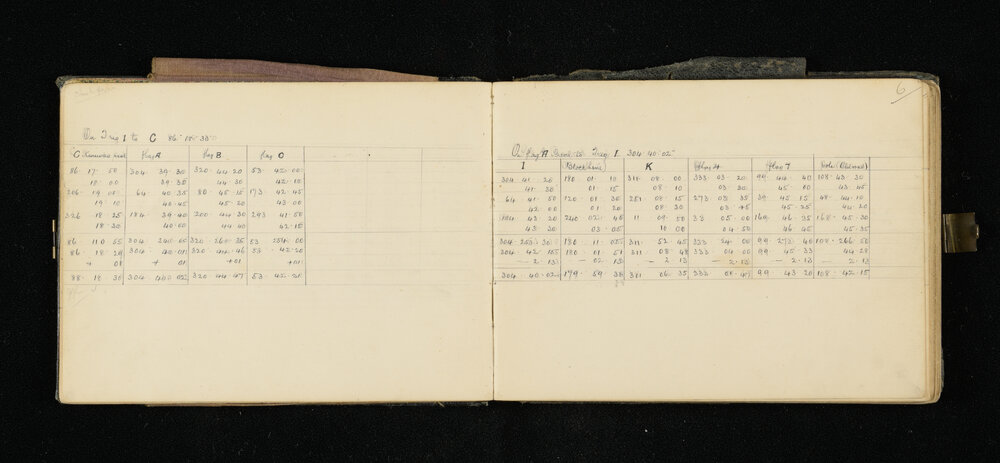 On Trig I to C 86° 18' 30"
C Flag A Flag B Flag C
86 17 50 304 39 30 320 44 20 53 42 00
18 00 39 35 44 30 42 10
206 19 00 64 40 35 80 45 15 173 42 45
19 10 40 45 45 20 43 00
326 18 25 184 39 40 200 44 30 293 41 50
18 30 40 00 44 40 42 15
86 110 55 304 240 05 320 260 35 53 254 00
86 18 29 304 40 01 320 44 46 53 42 20
+ 01 + 01 +01 +01
320 44 47 53 42 21
6
On Flag A Trig I 304 40 02
I K Flag 4 Flag 7
304 41 20 180 01 10 311 08 00 333 03 20 99 44 40 108 43 30
41 30 01 15 08 10 03 30 45 00 43 45
64 41 50 120 01 30 251 08 15 273 03 35 39 45 15 48 44 10
42 00 01 20 08 30 03 45 45 25 44 20
184 43 20 240 02 45 11 09 50 33 05 00 169 46 35 168 45 30
43 30 03 05 10 00 04 50 46 45 45 35
304 253 30 180 11 05 311 52 45 333 24 00 99 273 40 108 266 50
304 42 15 180 01 51 311 08 48 333 04 00 99 45 33 44 28
— 2 13 — 02 13 — 2 13 — 2 13 — 2 13 — 2 13
304 40 02 179 59 38 311 06 35 99 43 20 108 42 15